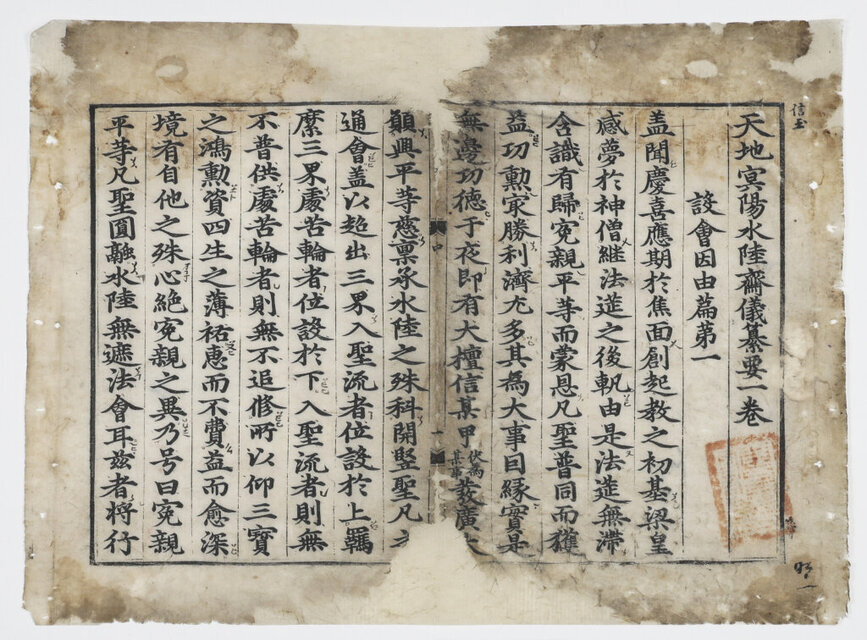 天地冥陽水陸齋儀纂要一卷
設會因由篇第一
盖聞慶喜應期於焦面創起教之初基梁皇
感夢於神僧継法筵之後軌由是法筵無滯
含識有歸寃親平等而蒙恩凡聖普同而獲
益功勲㝡勝利濟尤多其為大事因緣實是
無邊功德于夜即有大檀信某甲伏為某事發廣大
願興平等慈禀承水陸之殊科開竪聖凡之
通會盖以超出三界入聖流者位設於上羈
縻三界處苦輪者位設於下入聖流者則無
不普供處苦輪者則無不追修所以仰三寶
之鴻勲資四生之薄祐惠而不費益而愈深
境有自他之殊心絶寃親之異乃号曰寃親
平等凡聖圓融水陸無遮法會耳玆者將行
信玉